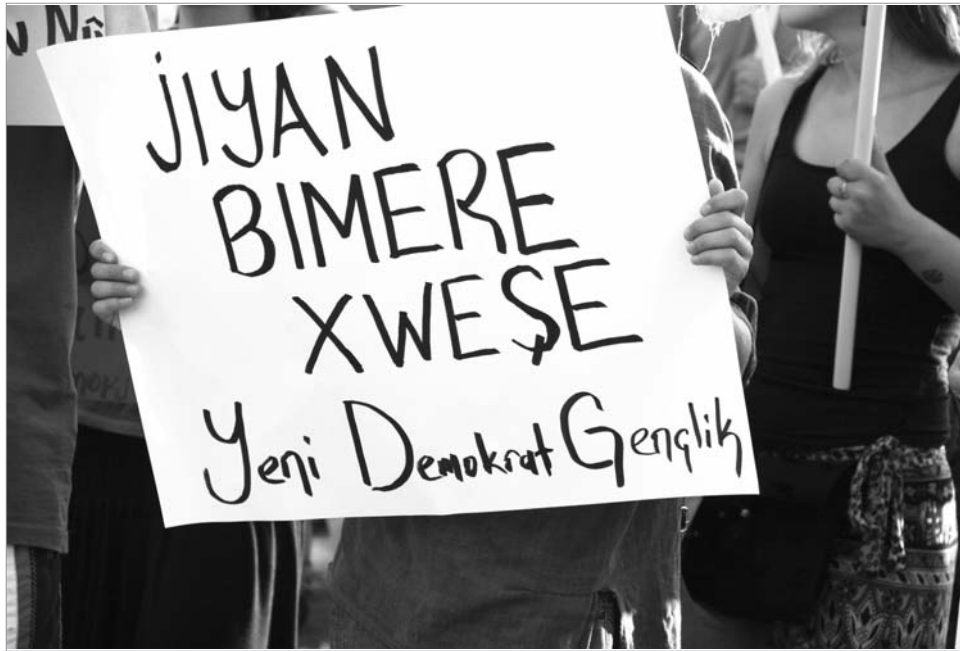 JIYAN
BIMERE
XWEŞE
Yeni Demokrat Gençlik